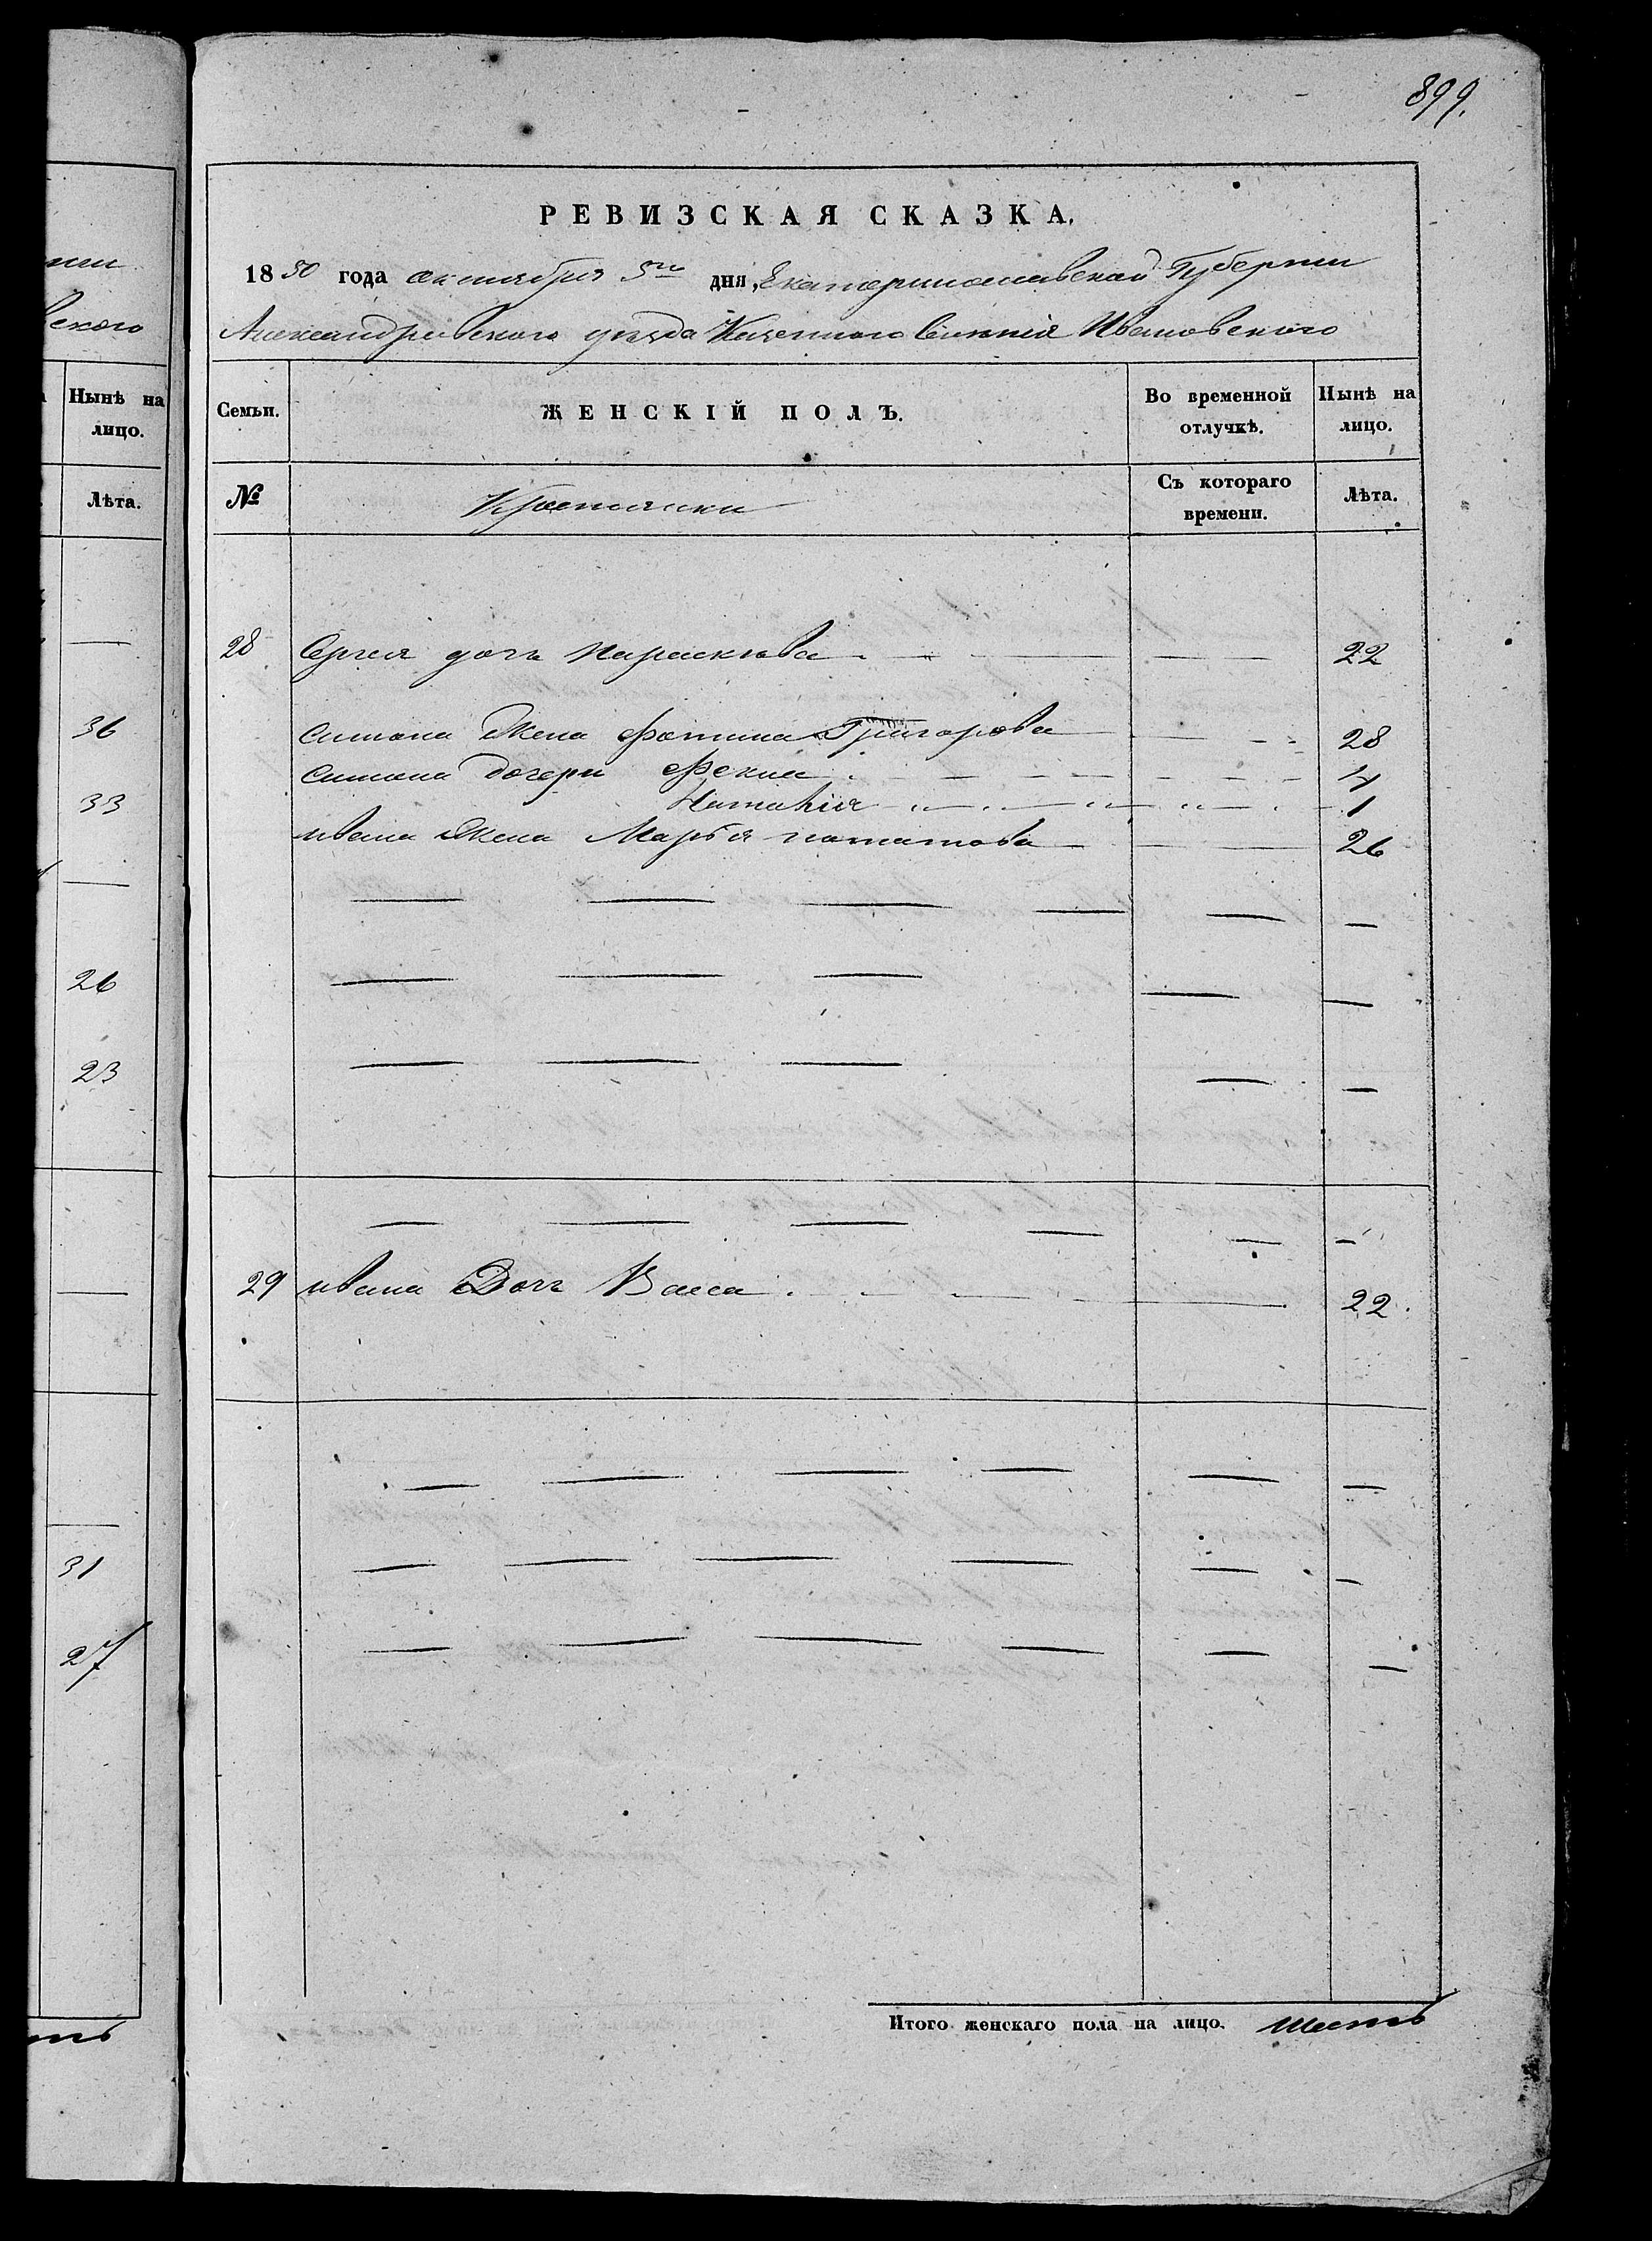 899.
нии
вского
Нынѣ на
лицо.
Лѣта.
36
33
26
23
31
27
РЕВИЗСКАЯ СКАЗКА.
1850 года октября 5го дня, Екатеринославской Губернии
Александровского уезда Казенного Селения Ивановского
Семьи.
ЖЕНСКІЙ ПОЛЪ.
Во временной
отлучкѣ.
Нынѣ на
лицо.
№
Крестянки
Съ котораго
времени.
Лѣта.
28 Сергея дочь Парасковва 22
Симона Жена Фотина Григорова 28
Симона дочери Фекла 4
Наталия 1
ивана Жена Марья потапова 26
29 ивана Дочь Васса 22
Итого женскаго пола на лицо. шесть